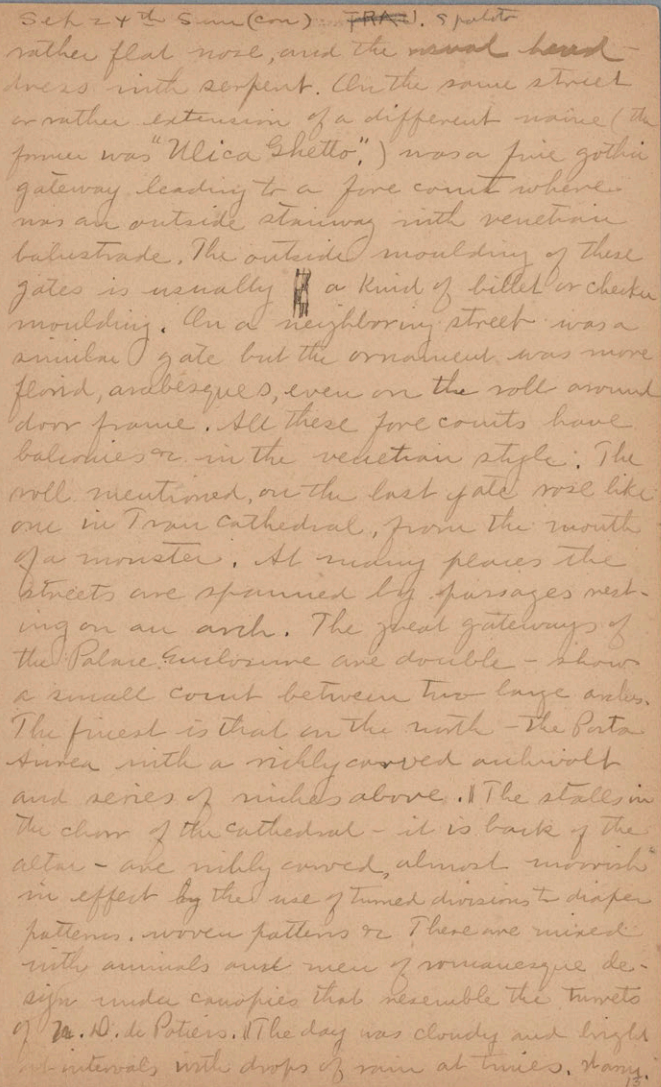 Sep 24th Sun (con) TRAU. Spalato
rather flat nose, and the usual head-
dress with serpent. On the same street
or rather extension of a different name (the
former was "Ulica Ghetto".) was a fine gothic
gateway leading to a fore court where
was an outside stairway with venetian
balustrade. The outside moulding of these
gates is usually a kind of billet or checker
moulding. On a neighboring street was a
similar gate but the ornament was more
florid, arabesques, even on the roll around
door frame. All these fore courts have
balconies &c in the venetian style. The
roll mentioned, on the last gate rose like
one in Trau Cathedral, from the mouth
of a monster. At many places the
streets are spanned by passages rest-
ing on an arch. The great gateways of
the Palace Enclosure are double - show
a small court between two large arches.
The finest is that on the north - the Porta
Aurea with a richly carved archivolt
and series of niches above. || The stalls in
the choir of the cathedral - it is back of the
altar - are richly carved, almost moorish
in effect by the use of turned divisions & diaper
patterns, woven patterns &c These are mixed
with animals and men of romanesque de-
sign under canopies that resemble the turrets
of N. D. de Potiers. || The day was cloudy and bright
at intervals with drops of rain at times.